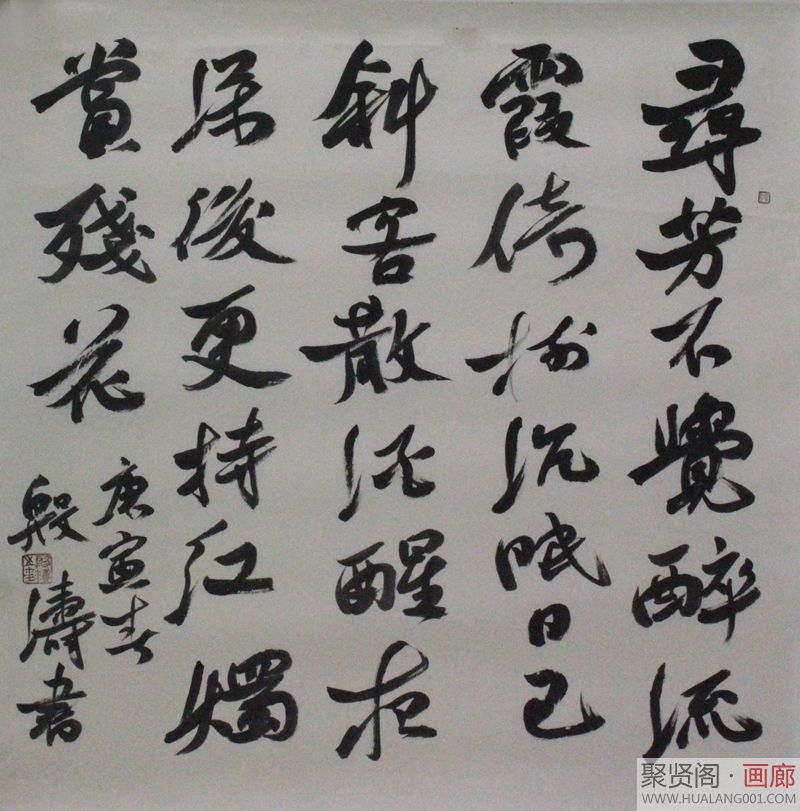 尋芳不覺醉流
霞倚樹沉眠日已
斜客散酒醒夜
深後更持紅燭
賞殘花
庚寅春
殷濤書
聚贤阁·画廊
WWW.HUALANG001.COM